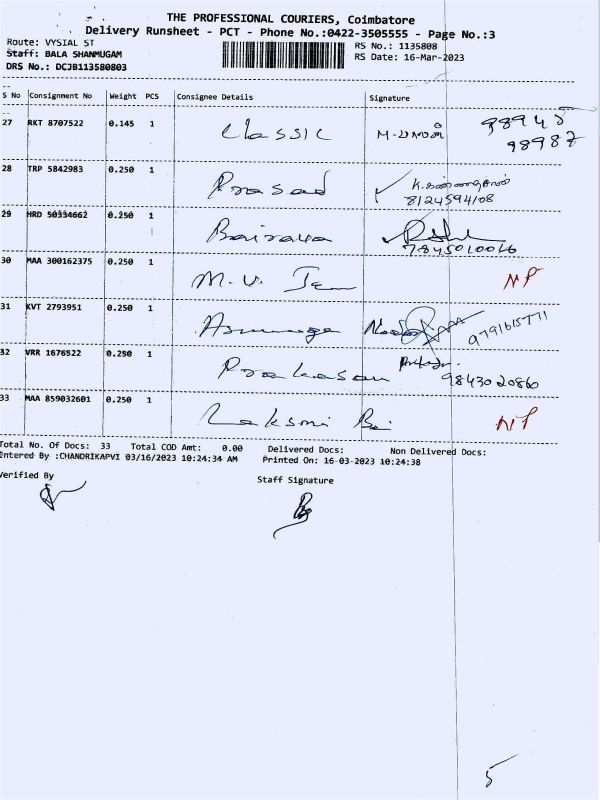 THE PROFESSIONAL COURIERS, Coimbatore
Delivery Runsheet - PCT - Phone No.:0422-3505555 - Page No.:3
Route: VYSIAL ST
Staff: BALA SHANMUGAM
DRS No.: DCJB113580803
RS No.: 1135808
RS Date: 16-Mar-2023
S No Consignment No Weight PCS Consignee Details Signature
27 RKT 8707522 0.145 1 Classic 98945
98987
28 TRP 5842983 0.250 1 Prasad
8124594108
29 HRD 50334662 0.250 1 Bairava
7845010066
30 MAA 300162375 0.250 1 M.V. NP
31 KVT 2793951 0.250 1 9791615771
32 VRR 1676522 0.250 1 Prakasan
9843020860
33 MAA 859032601 0.250 1 Laksmi Bai NP
Total No. Of Docs: 33 Total COD Amt: 0.00 Delivered Docs: Non Delivered Docs:
Entered By :CHANDRIKAPVI 03/16/2023 10:24:34 AM Printed On: 16-03-2023 10:24:38
Verified By
Staff Signature
5